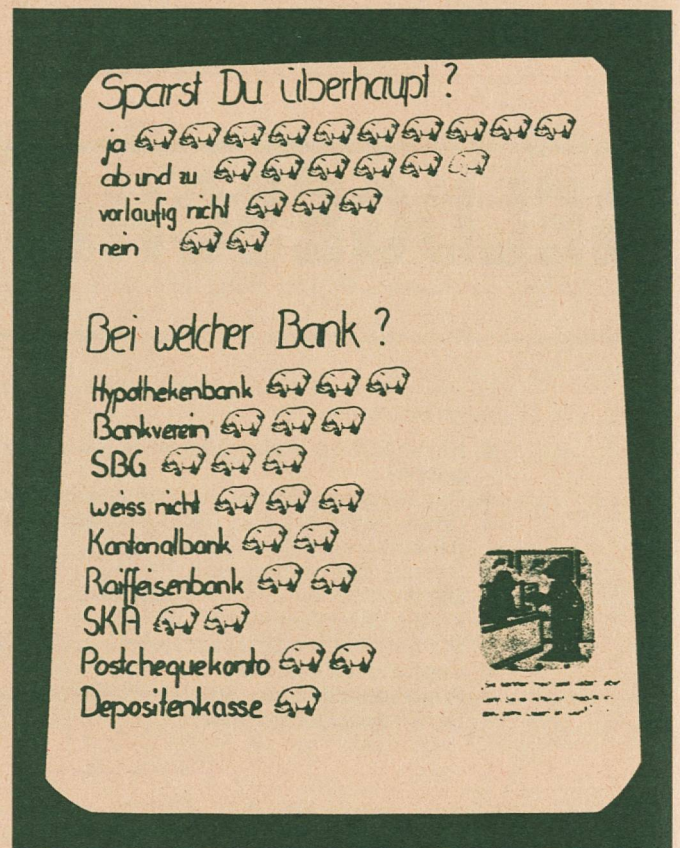 Sparst Du überhaupt ?
ja
ab und zu
vorläufig nicht
nein
Bei welcher Bank ?
Hypothekenbank
Bankverein
SBG
weiss nicht
Kantonalbank
Raiffeisenbank
SKA
Postchequekonto
Depositenkasse